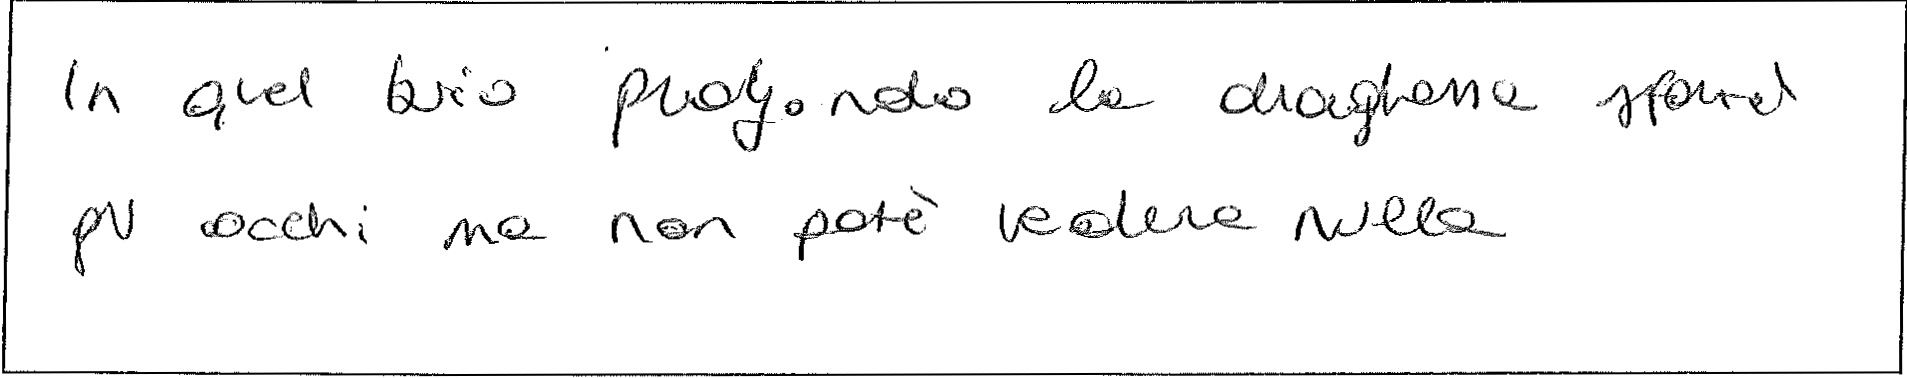 In quel buio profondo la draghessa
gli occhi ma non potè vedere nulla